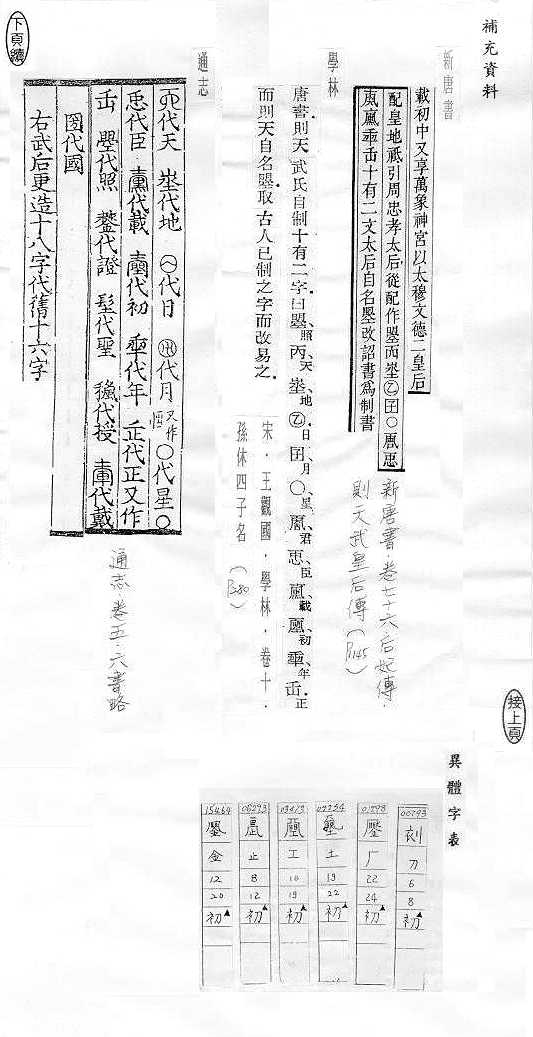 補充資料
新唐書
載初中又享萬象神宮以太穆文德二皇后
配皇地祇引周忠孝太后從配作曌丙埊𠮔囝〇𠺞𢘑
𡕀𡔈𠡦𠙺十有二文太后自名曌改詔書爲制書
新唐書·卷七十六后妃傳·
則天武皇后傳(P.145)
學林
唐書則天武氏自制十有二字曰曌、照丙、天埊、地𠮔、日囝、月〇、星𠺞、君𢘑、臣𡕀、載𡔈、初𠡦、年𠙺。正
而則天自名曌取古人已制之字而改易之。
宋·王觀國·學林·卷十·
孫休四子名(P.280)
通志
代天 埊代地 代日 代月又作 〇代星〇
𢘑代臣 代載 代初 代年 代正又作
𠙺 曌代照 代證 代聖 代授 代戴
圀代國
右武后更造十八字代舊十六字
通志卷五·六書略
下頁續
接上頁
異體字表
00793 刀 6 8 初
01298 厂 22 24 初
土 19 22 初
03413 工 16 19 初
止 8 12 初
15464 金 12 20 初